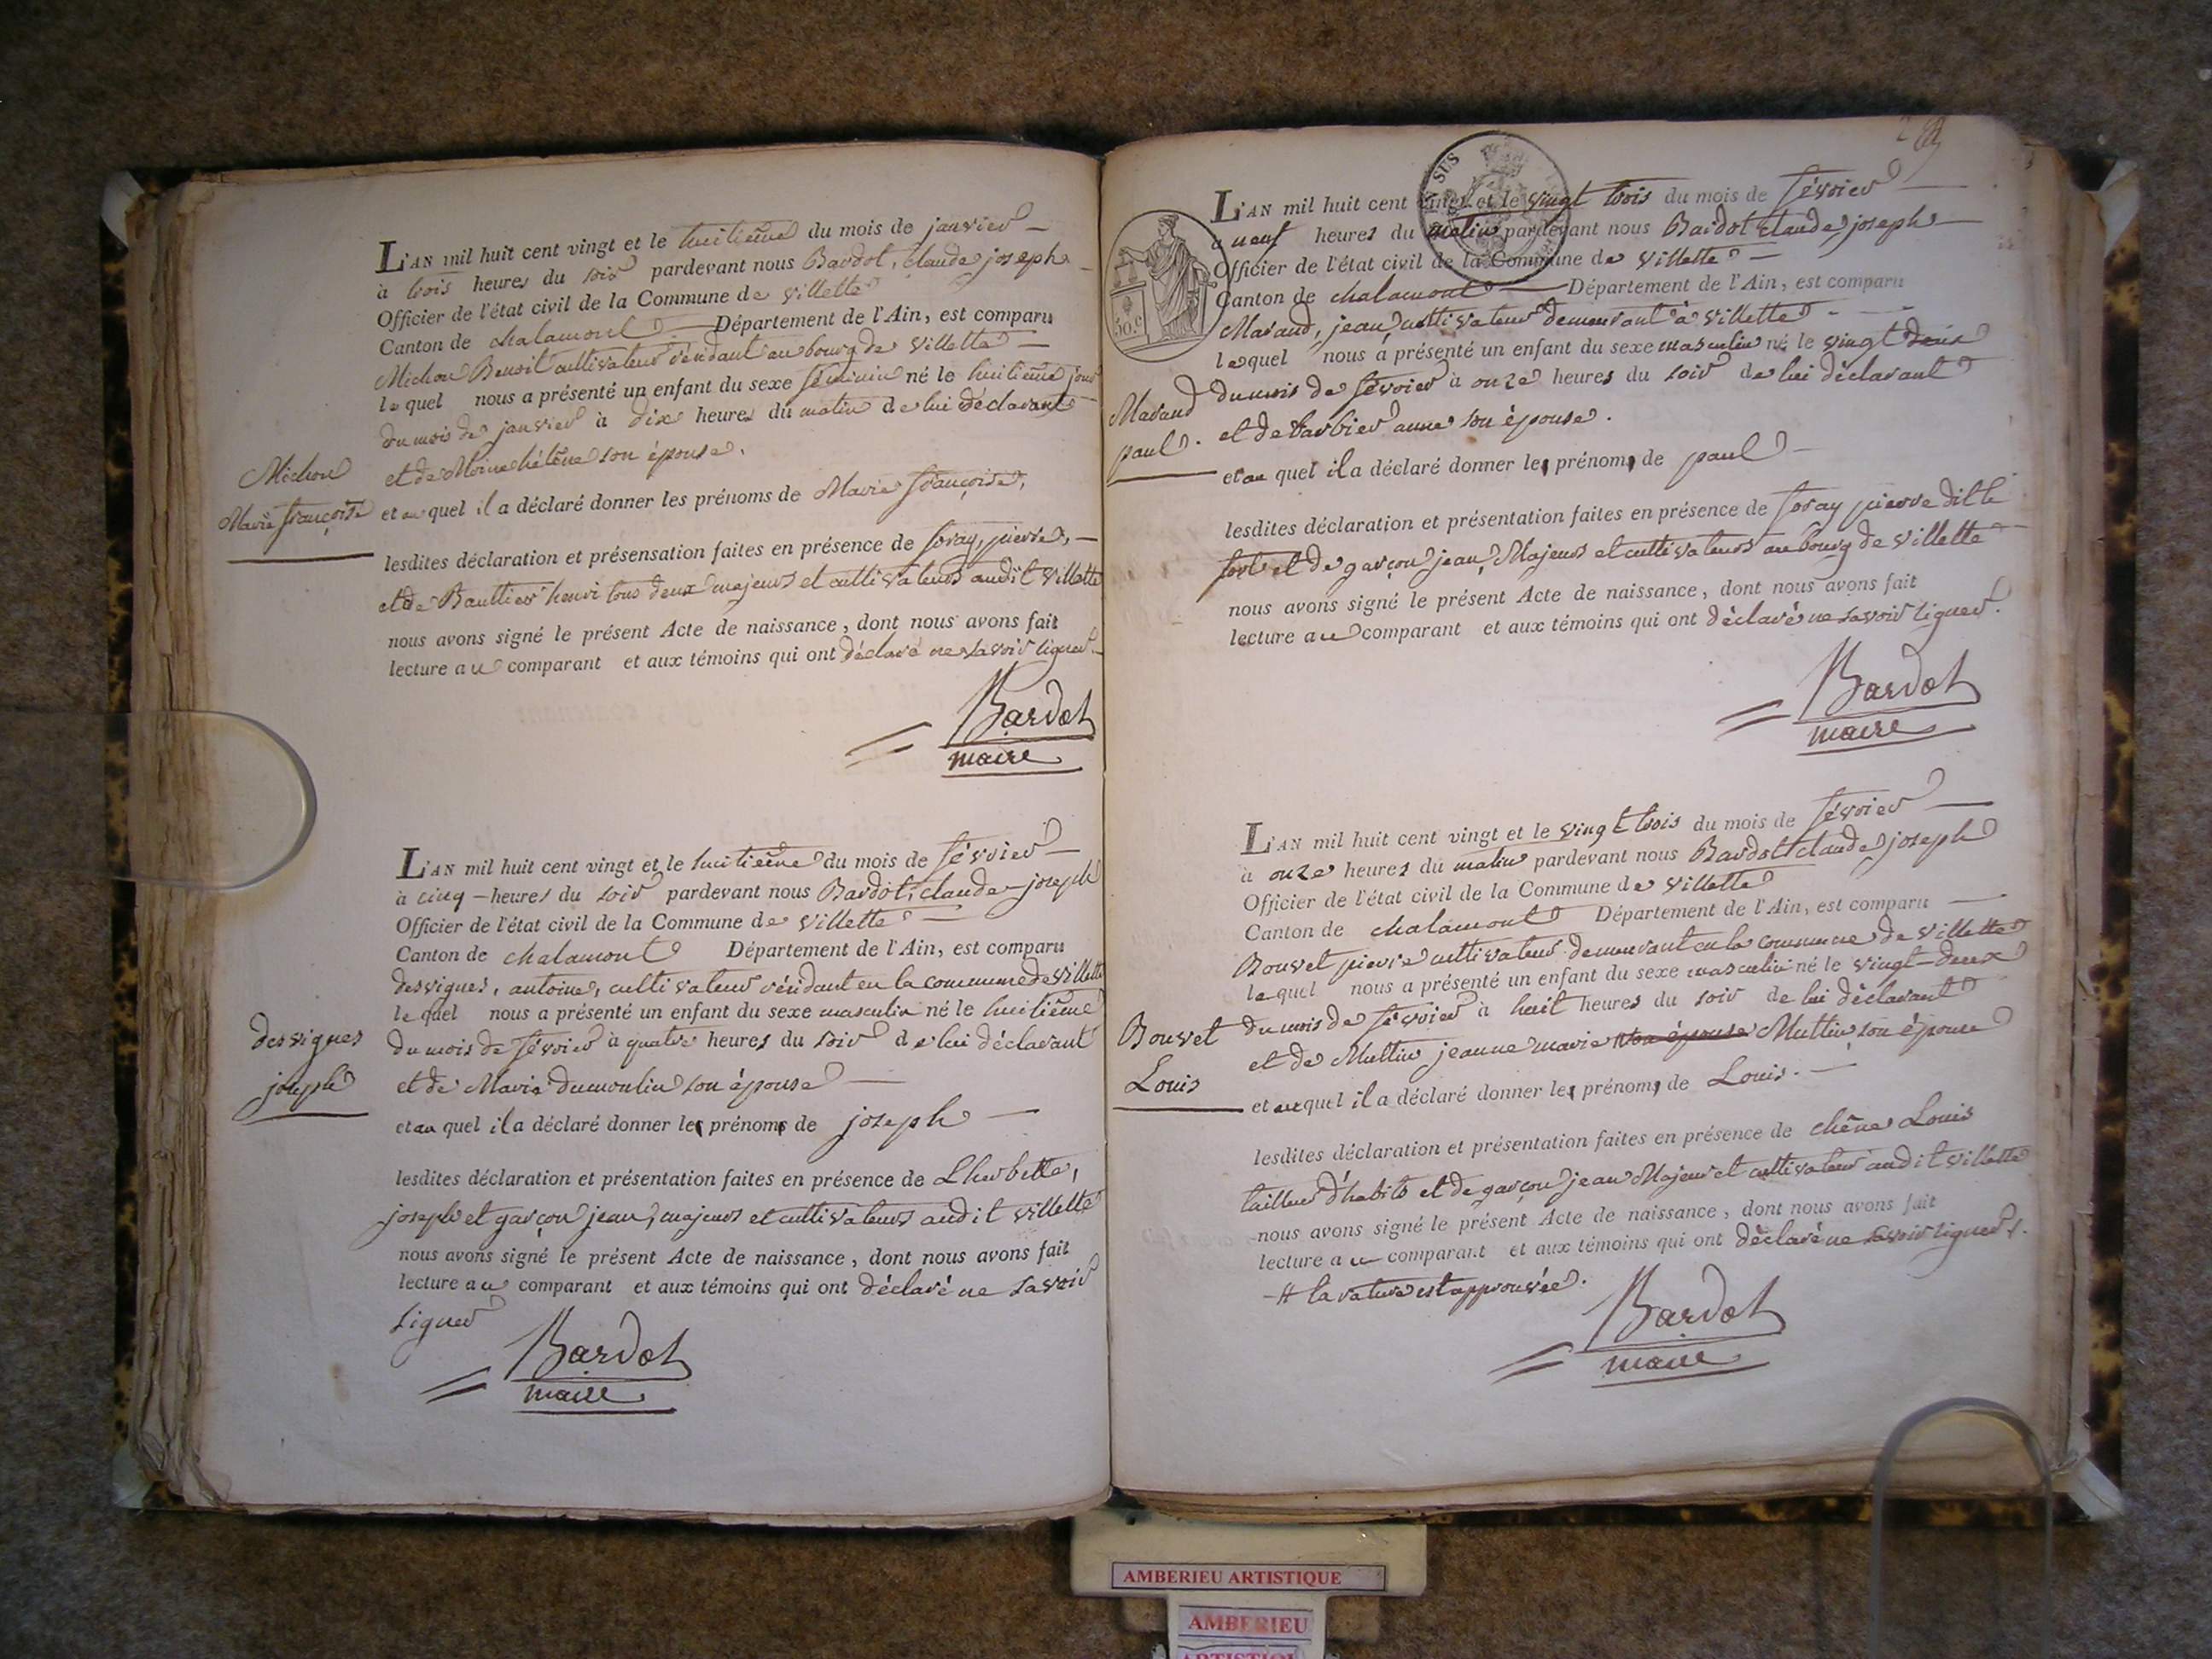 L'AN mil huit cent vingt et le huitième du mois de janvier
à trois heures du soir pardevant nous Bardot, Claude joseph
Officier de l'état civil de la Commune de villette
Canton de chalamont Département de l'Ain, est comparu
Michon Benoit cultivateur résidant au bourg de villette
lequel nous a présenté un enfant du sexe féminin né le huitième jour
du mois de janvier à dix heures du matin de lui déclarant
et de Moine hélène son épouse.
et au quel il a déclaré donner les prénoms de Marie françoise,
Michon
Marie françoise
lesdites déclaration et présensation faites en présence de foray, pierre,
et de Bauttier henri tous deux majeurs et cultivateurs audit villette
nous avons signé le présent Acte de naissance, dont nous avons fait
lecture au comparant et aux témoins qui ont déclaré ne savoir signer.
Bardot
maire
L'AN mil huit cent vingt et le huitième du mois de février
à cinq heures du soir pardevant nous Bardot, claude joseph
Officier de l'état civil de la Commune de villette
Canton de chalamont Département de l'Ain, est comparu
desvignes, antoine, cultivateur résidant en la commune de villette
lequel nous a présenté un enfant du sexe masculin né le huitième
du mois de février à quatre heures du soir de lui déclarant
et de Marie dumoulin son épouse
et au quel il a déclaré donner les prénoms de joseph
desvignes
joseph
lesdites déclaration et présentation faites en présence de Lherbette,
joseph et garçon jean, majeurs et cultivateurs audit villette
nous avons signé le présent Acte de naissance, dont nous avons fait
lecture au comparant et aux témoins qui ont déclaré ne savoir
signer
Bardot
maire
SUS
50.c
L'AN mil huit cent vingt et le vingt trois du mois de février
à neuf heures du matin pardevant nous Bardot Claude, joseph
Officier de l'état civil de la Commune de villette
Canton de chalamont Département de l'Ain, est comparu
Marand, jean, cultivateur demeurant à villette
lequel nous a présenté un enfant du sexe masculin né le vingt deux
du mois de février à onze heures du soir de lui déclarant
et de barbier anne son épouse.
et au quel il a déclaré donner les prénoms de paul
Marand
paul.
lesdites déclaration et présentation faites en présence de foray pierre dit le
fort et de garçon jean, Majeurs et cultivateurs au bourg de villette
nous avons signé le présent Acte de naissance, dont nous avons fait
lecture au comparant et aux témoins qui ont déclaré ne savoir signer.
Bardot
maire
L'AN mil huit cent vingt et le vingt trois du mois de février
à onze heures du matin pardevant nous Bardot claude joseph
Officier de l'état civil de la Commune de villette
Canton de chalamont Département de l'Ain, est comparu
Bouvet pierre cultivateur demeurant en la commune de villette
lequel nous a présenté un enfant du sexe masculin né le vingt-deux
du mois de février à huit heures du soir de lui déclarant
et de Muttin jeanne marie son épouse Muttin son épouse
et auquel il a déclaré donner les prénoms de Louis.
Bouvet
Louis
lesdites déclaration et présentation faites en présence de chêne Louis
tailleur d'habits et de garçon jean Majeur et cultivateur audit villette
nous avons signé le présent Acte de naissance, dont nous avons fait
lecture au comparant et aux témoins qui ont déclaré ne savoir signer.
la rature est approuvée.
Bardot
maire
AMBERIEU ARTISTIQUE
AMBERIEU
ARTISTIQUE